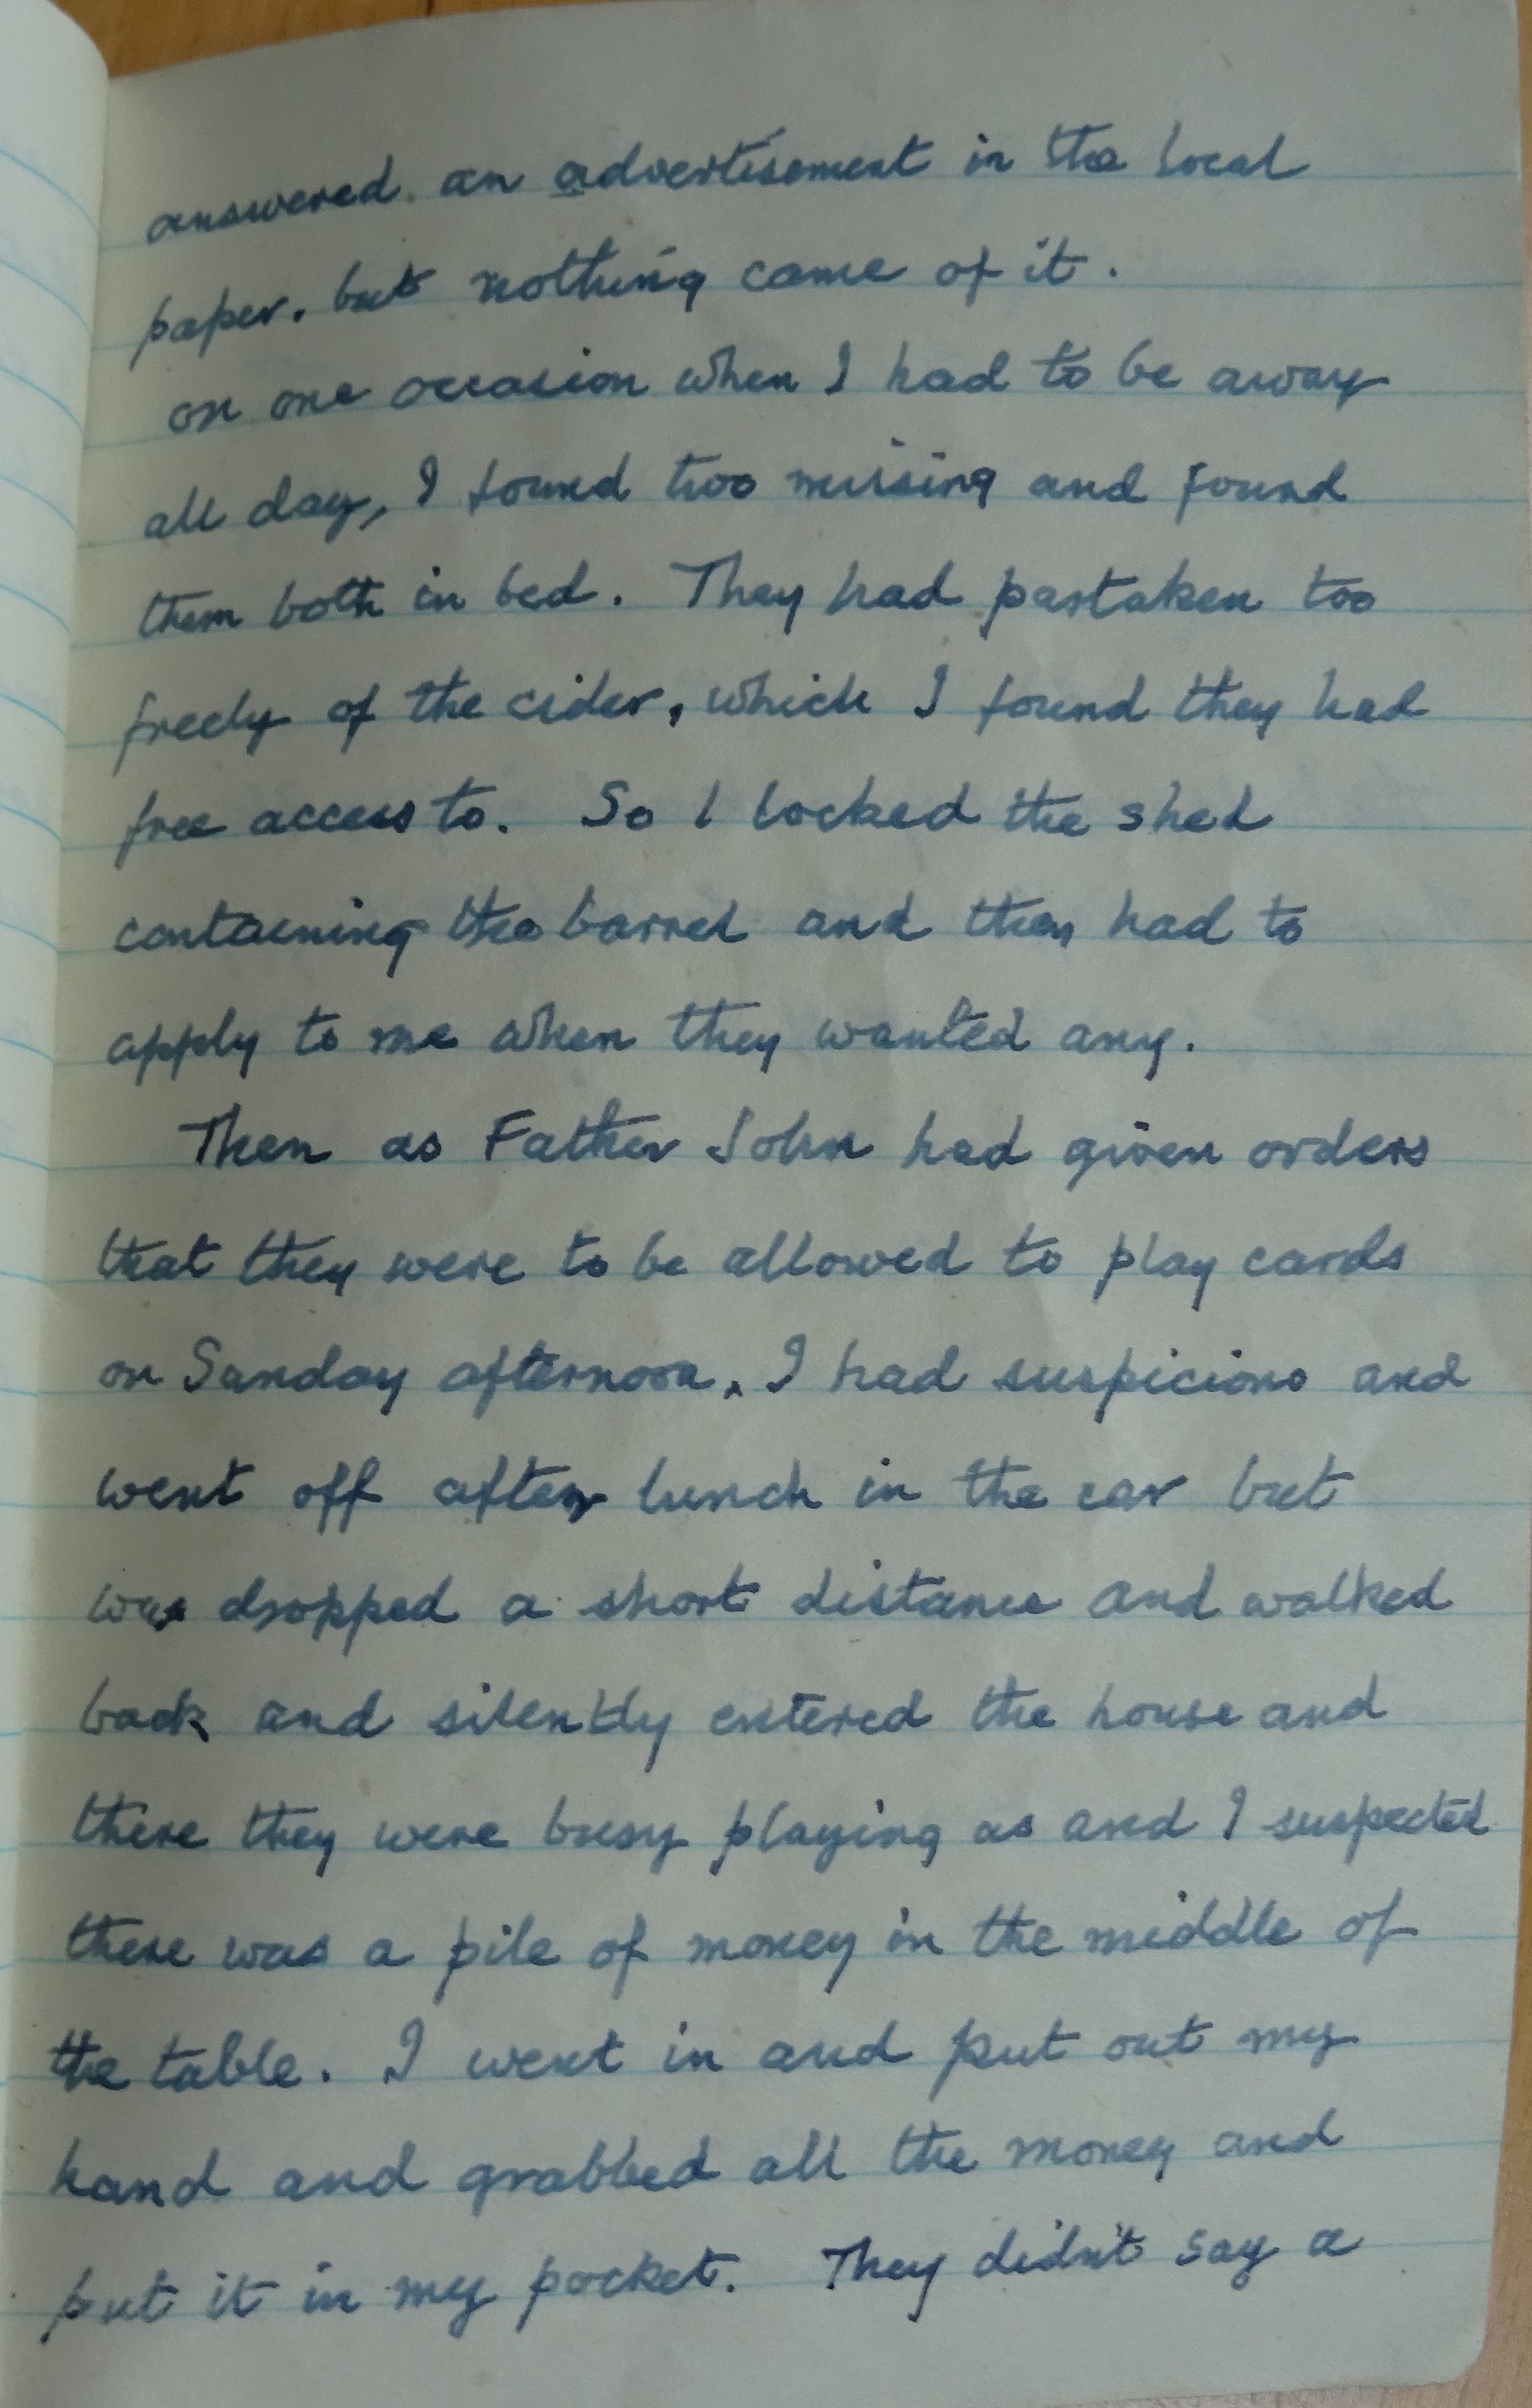 answered an advertisement in the local
paper. but nothing came of it.
on one occasion when I had to be away
all day, I found two missing and found
them both in bed. They had partaken too
freely of the cider, which I found they had
free access to. So I locked the shed
containing the barrel and then had to
apply to me when they wanted any.
Then as Father John had given orders
that they were to be allowed to play cards
on Sunday afternoon, I had suspicions and
went off after lunch in the car but
was dropped a short distance and walked
back and silently entered the house and
there they were busy playing as and I suspected
there was a pile of money in the middle of
the table. I went in and put out my
hand and grabbed all the money and
put it in my pocket. They didn't say a